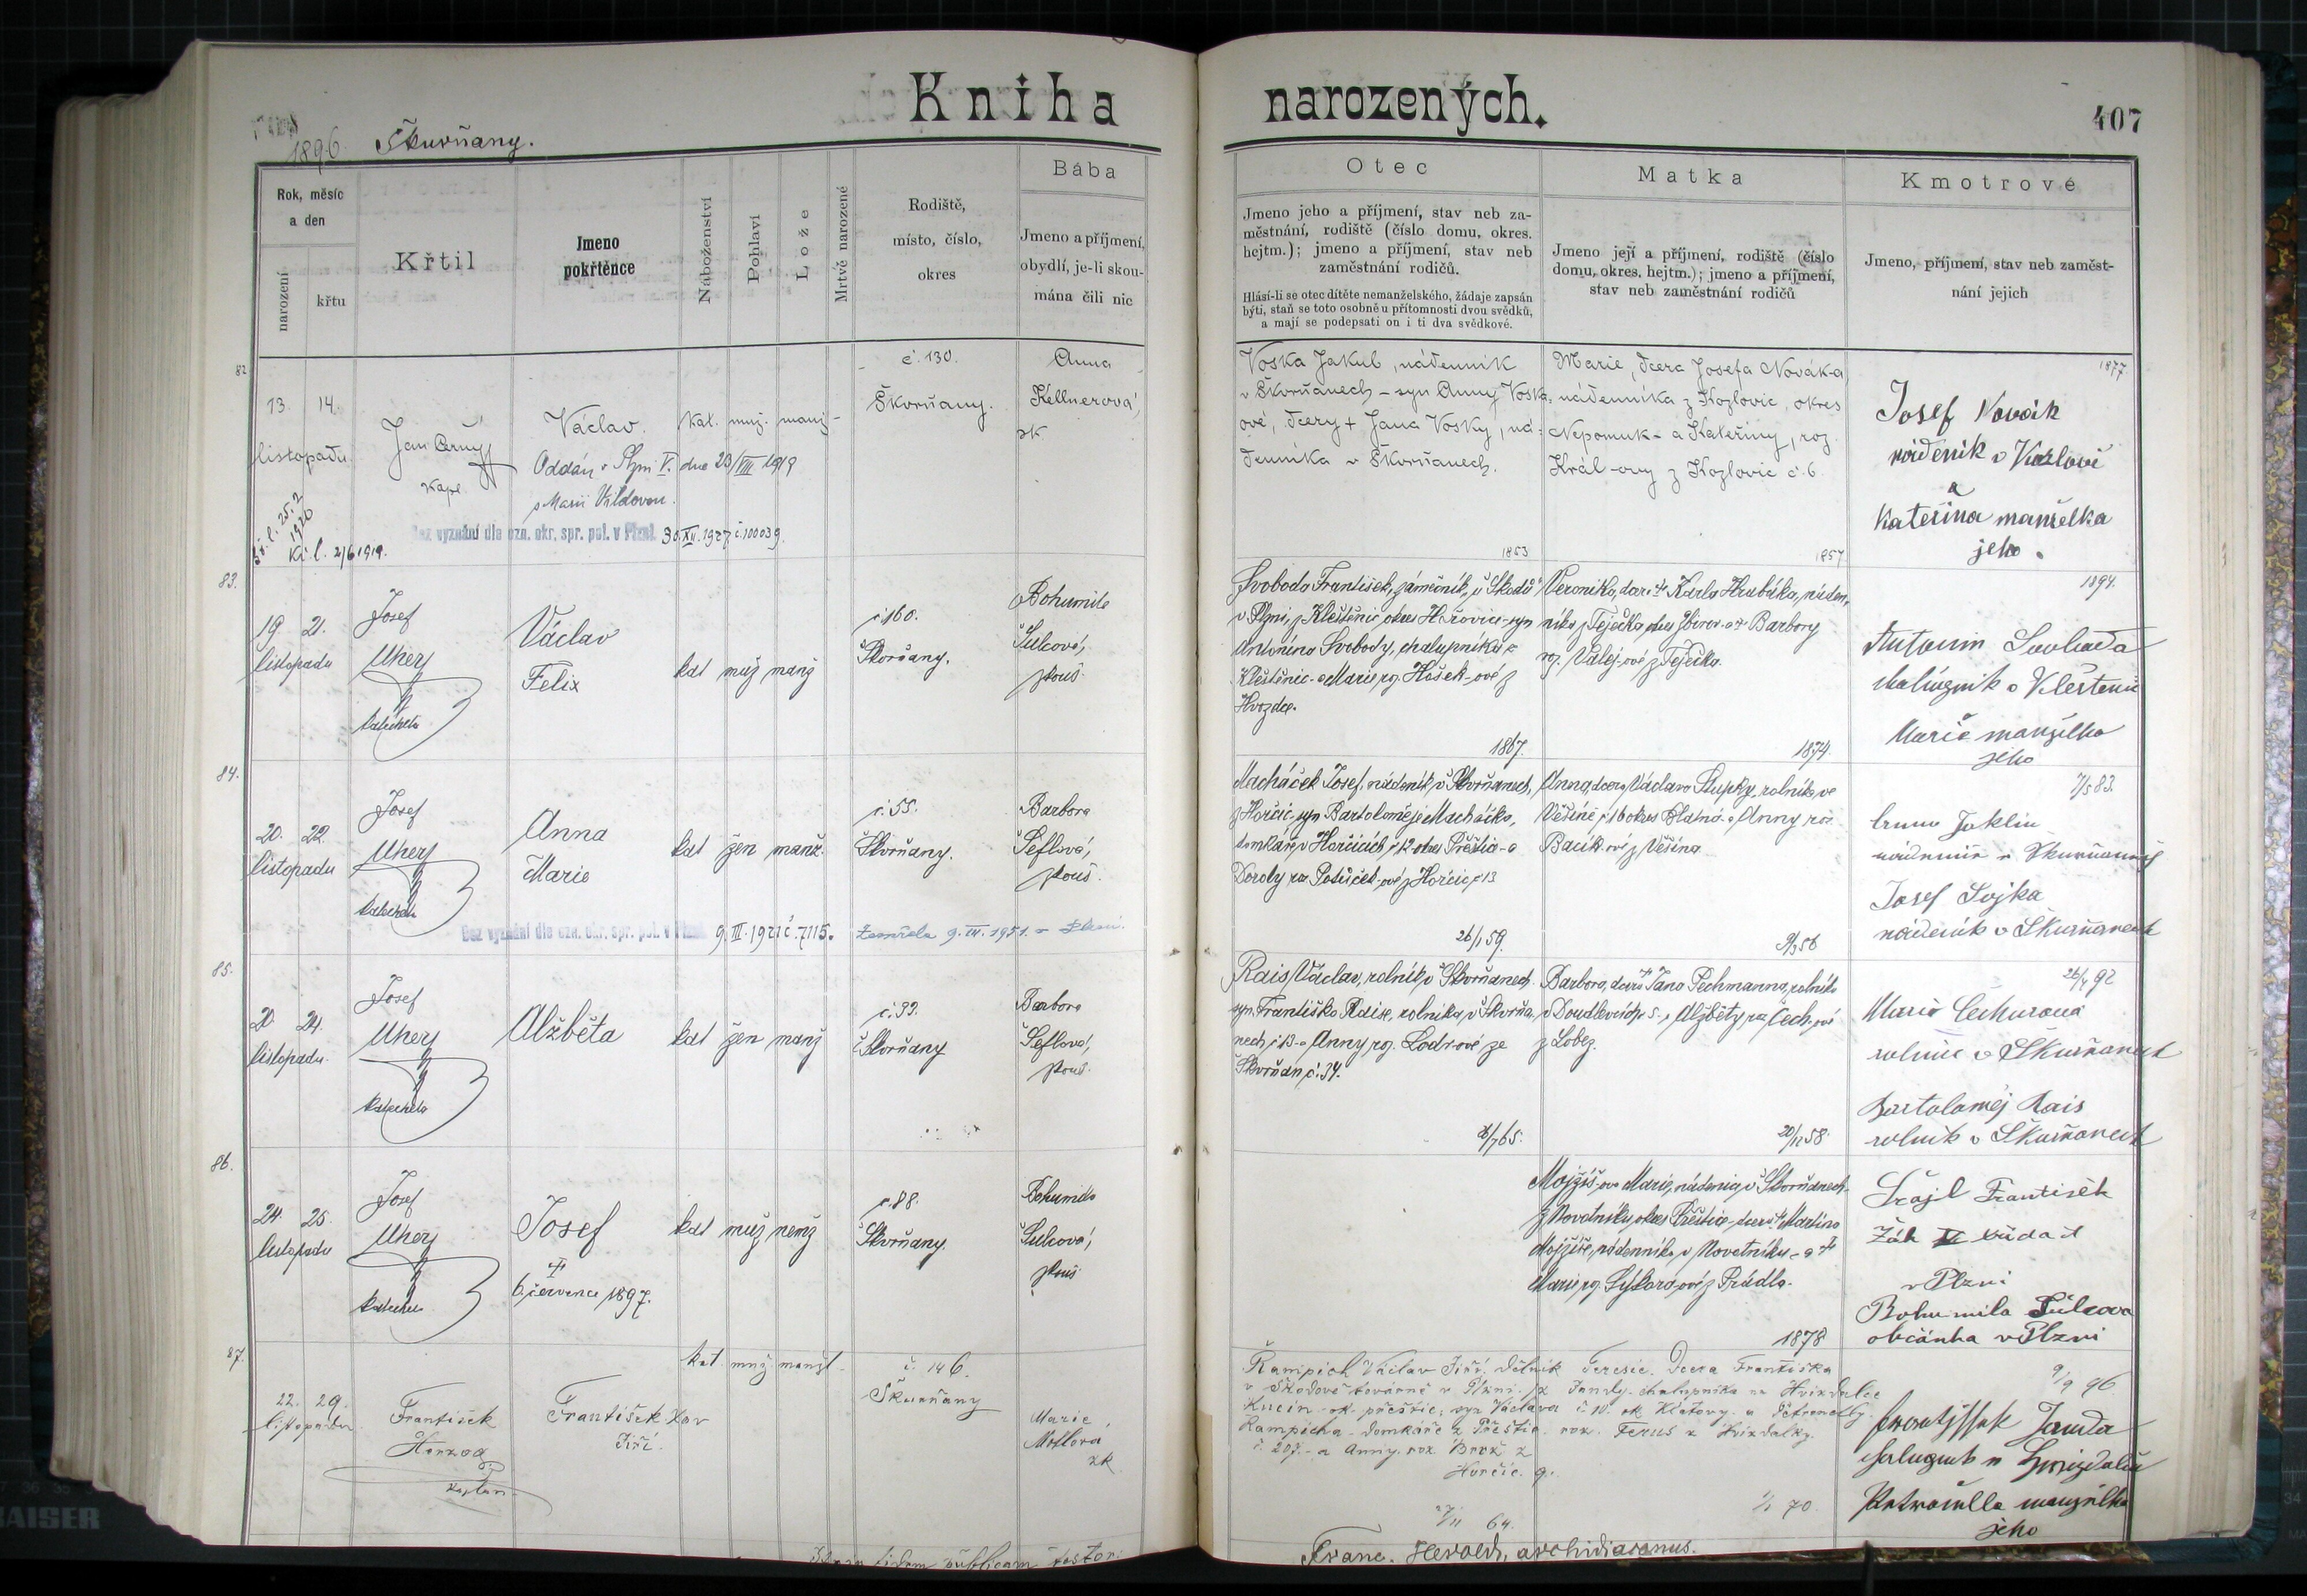 Kniha narozených.
407
1896 Škurňany.
Rok, měsíc
a den
narození
křtu
Křtil
Jmeno
pokřtěnce
Náboženství
Pohlaví
Lože
Mrtvě narozené
Rodiště,
místo, číslo,
okres
Bába
Jmeno a příjmení,
obydlí, je-li skou-
mána čili nic
Otec
Jmeno jeho a příjmení, stav neb za-
městnání, rodiště (číslo domu, okres.
hejtm.); jmeno a příjmení, stav neb
zaměstnání rodičů.
Hlásí-li se otec dítěte nemanželského, žádaje zapsán
býti, staň se toto osobně u přítomnosti dvou svědků,
a mají se podepsati on i ti dva svědkové.
Matka
Jmeno její a příjmení, rodiště (číslo
domu, okres. hejtm.); jmeno a příjmení,
stav neb zaměstnání rodičů
Kmotrové
Jmeno, příjmení, stav neb zaměst-
nání jejich
82
13. 14.
listopadu
Jan Černý
Kapl.
Václav.
kat. muž. manž-
Oddán v Plzni V. dne 23/VIII 1919
s Marií
Bez vyznání dle ozn. okr. spr. pol. v Plzni 30.XII.1927 č.100039.
2/6 1919.
č. 130.
Škvrňany.
Anna
Kellnerová,
zk
Voska Jakub, nádenník
v Škvrňanech - syn Anny Vosk-
ové, dcery + Jana Vosky, ná-
denníka v Škvrňanech.
1853
Marie, dcera Josefa Nováka,
nádenníka z Kozlovic, okres
Nepomuk - a Kateřiny, roz.
Král-ovy z Kozlovic č. 6.
1857
1877
Josef Novák
nádeník v Kozlovi
a
Kateřina manželka
jeho.
83.
19 21.
listopadu
Josef
Uherý
katecheta
Václav
Felix
kat muž manž
č 160.
Škvrňany.
Bohumila
Šulcová,
zkouš.
Svoboda František, zámečník u Škodů
v Plzni, z Kleštěnic okres Hořovice - syn
Antonína Svobody, chalupníka z
Kleštěnic - a Marie, roz. Hošek-ové z
Hvozdce.
1867.
Veronika, dcera + Karla Hrubáka, náden-
níka z Těječka okres Zbirov - a + Barbory
roz. Válej-ové z Těječka.
1874.
1894.
Antonín Svoboda
v Kleštěnic
Marie manželka
jeho
84.
20. 22.
listopadu
Josef
Uherý
katecheta
Anna
Marie
kat žen manž.
č. 55.
Škvrňany.
Barbora
Šeflová,
zkouš.
Bez vyznání dle ozn. okr. spr. pol. v Plzni 9.III.1921 č. 7115.
Zemřela 9.III.1951. v Plzni.
Macháček Josef, nádeník v Škvrňanech,
z Horčic, syn Bartoloměje Macháčka,
domkáře v Horčicích č 12 okres Přeštice - a
Doroty roz. -ové z Horčic č 13
26/1 59.
Anna, dcera Václava Šlupky, rolníka ve
Věšíně č 16 okres Blatná a Anny roz.
Bacík-ové z Věšína.
9/3 56
7/5 83.
Jaklin
v Škurňanech
Josef Sojka
nádeník v Škurňanech
85.
24.
listopadu.
Josef
Uherý
katecheta
Alžběta
kat žen manž
č. 33.
Škvrňany
Barbora
Šeflová,
zkouš.
Rais Václav, rolník v Škvrňanech
syn Františka Raise, rolníka v Škvrňa-
nech č 13 - a Anny, roz. Lodr-ové ze
Škvrňan č. 34.
Barbora, dcera + Jana Pechmanna, rolníka
v Doudlevcích č 5. a Alžběty roz. Čech-ové
z Lobez.
20/11 58.
26/4 92
Marie Čechurová
rolnice v Škurňanech
Bartoloměj Rais
rolník v Škurňanech
86.
24. 25.
listopadu
Josef
Uherý
katecheta
Josef
+
6. července 1897.
kat muž nemž
č. 88.
Škvrňany.
Bohumila
Šulcová,
zkouš
Mojžíš-ova Marie, nádenice v Škvrňanech
z Novotníku, okres Přeštice - dcera + Martina
Mojžíše, nádenníka v Novotníku - a +
Marie, roz. Sýkora-ové z Prádla.
1878
Šrajl František
Žák V.
v Plzni
Bohumila Šulcova
občanka v Plzni
87.
22. 29.
listopadu
František
Herzog
kaplan
František Xav
Jiří.
kat muž. manžel-
č. 146.
Škurňany
Marie
zk
Rampich Václav Jiří, dělník
v Škodově továrně v Plzni, z
Kucín - ok. přeštic, syn Václava
Rampicha - domkáře z Přeštic
č. 207. - a Anny, roz. Brož z
Horčic. 9.
27/11 64.
Teresie. Dcera Františka
Jandy - chalupníka na Hvízdalce
č 10. ok Klatovy. a Petronelly.
roz. Ferus z Hvízdalky.
1/1 70.
9/9 96.
Janda
manželka
jeho
Franc. Herold, archidiaconus.